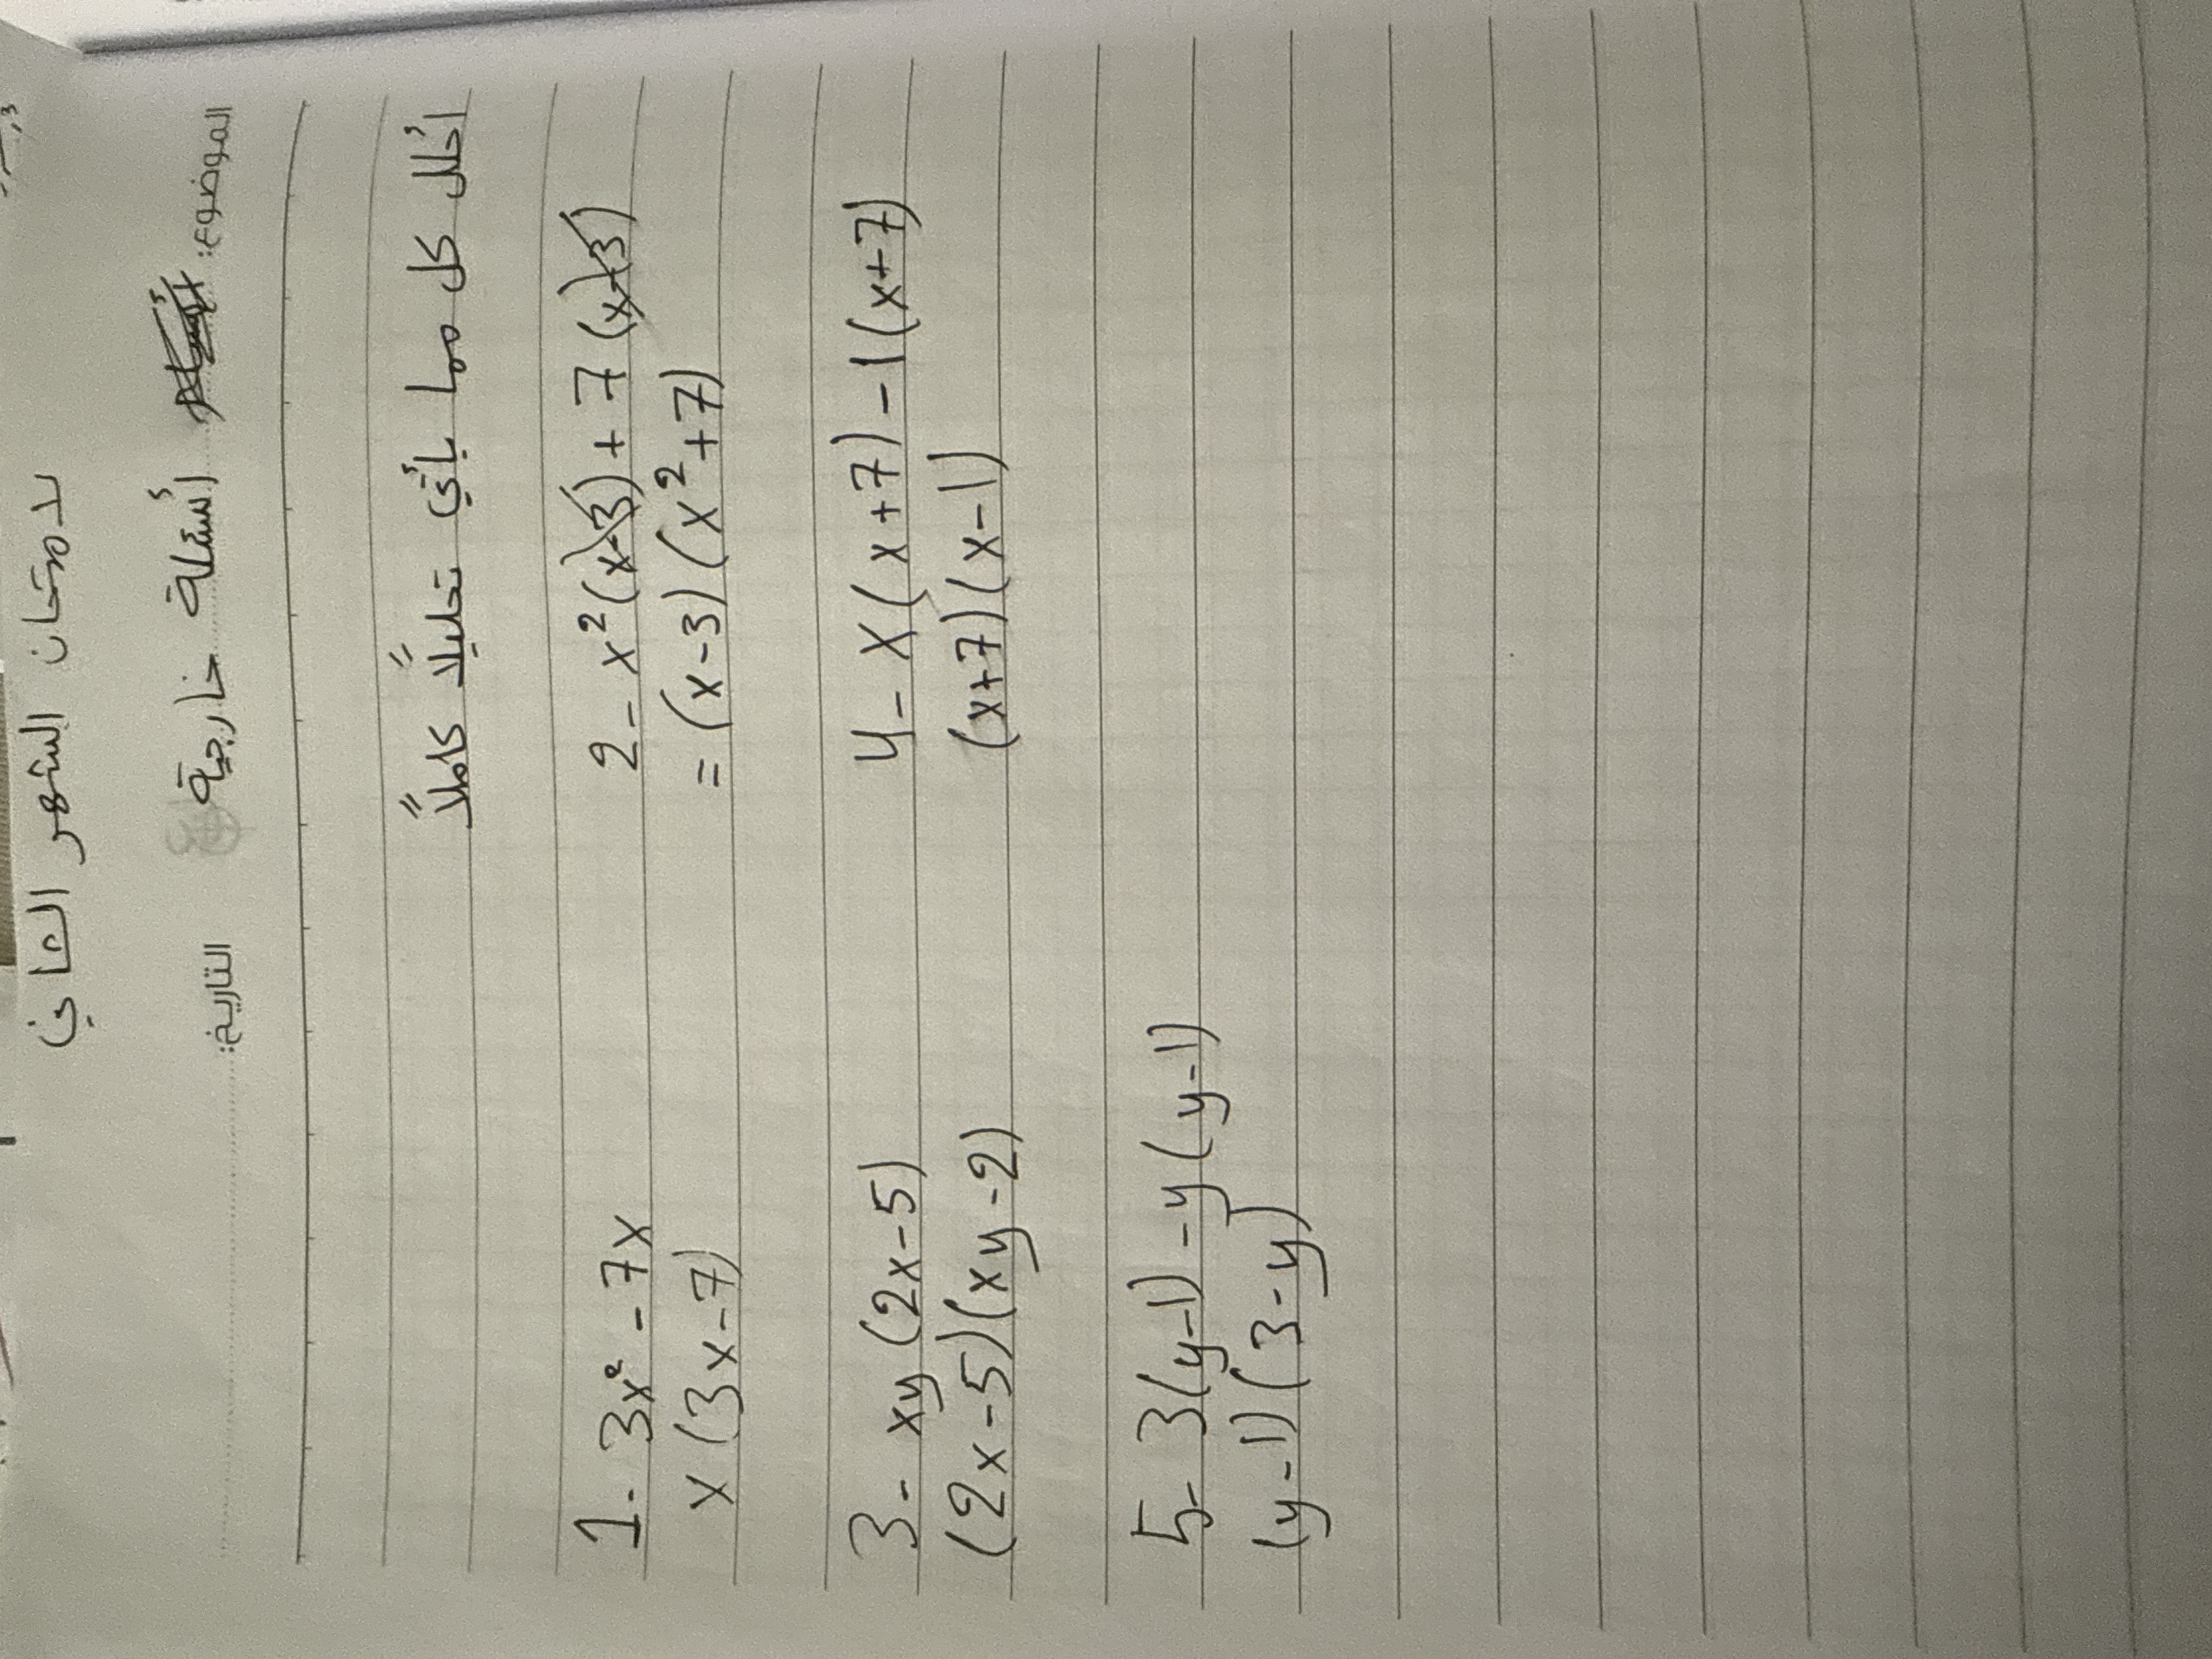 لامتحان الشهر الثاني
الموضوع: أسئلة خارجية التاريخ:
أحلل كل مما يأتي تحليلًا كاملًا
1- 3x² - 7x 2- x²(x-3) + 7(x-3)
x(3x-7) = (x-3)(x²+7)
3- xy(2x-5) 4- x(x+7) - 1(x+7)
(2x-5)(xy-2) (x+7)(x-1)
5- 3(y-1) - y(y-1)
(y-1)(3-y)